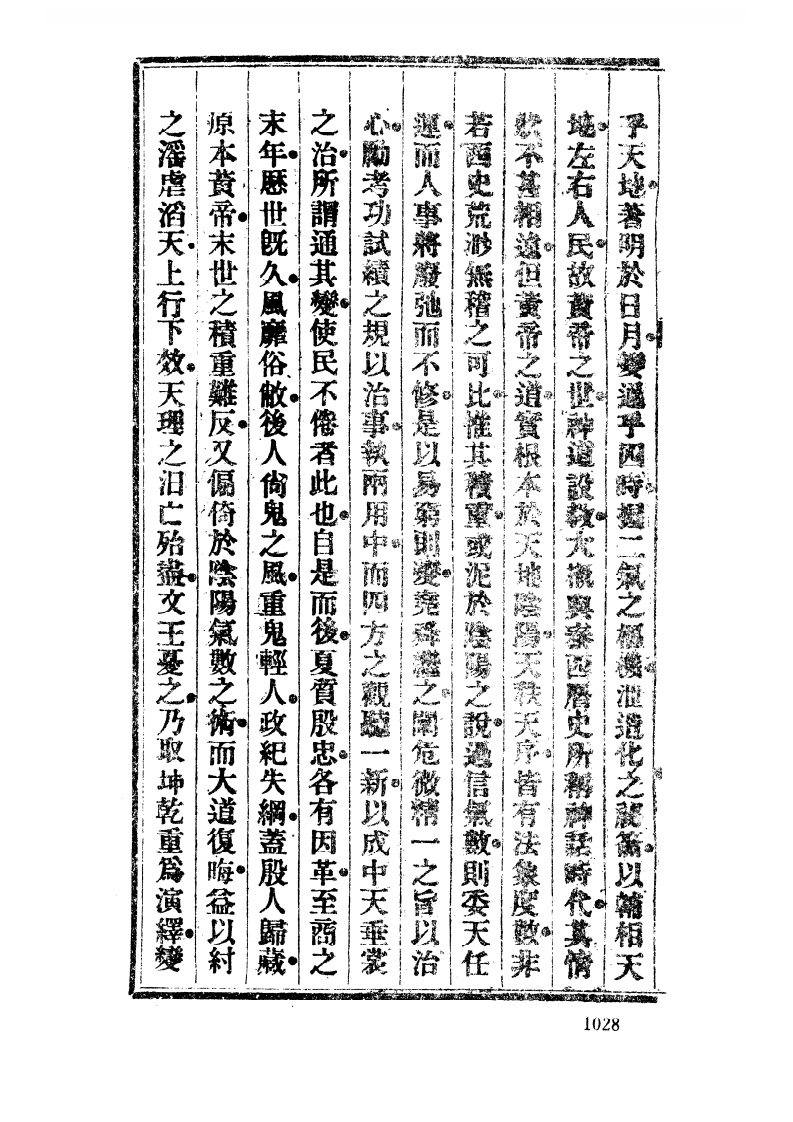 乎天地著明於日月變通乎四時握二氣之樞機泄造化之祕籥以輔相天
地左右人民故黃帝之世神道設敎大槪與泰西曆史所稱神話時代其情
狀不甚相遠但黃帝之道實根本於天地陰陽天秩天序皆有法象度數非
若西史荒渺無稽之可比惟其積重或泥於陰陽之說過信氣數則委天任
運而人事將廢弛而不修是以易窮則變堯舜之闡危微精一之旨以治
心勵考功試績之規以治事執兩用中而四方之觀聽一新以成中天垂裳
之治所謂通其變使民不倦者此也自是而後夏質殷忠各有因革至商之
末年歷世旣久風靡俗敝後人尙鬼之風重鬼輕人政紀失綱蓋殷人歸藏
原本黃帝末世之積重難反又偏倚於陰陽氣數之術而大道復晦益以紂
之淫虐滔天上行下效天理之汨亡殆盡文王憂之乃取坤乾重爲演繹變
1028